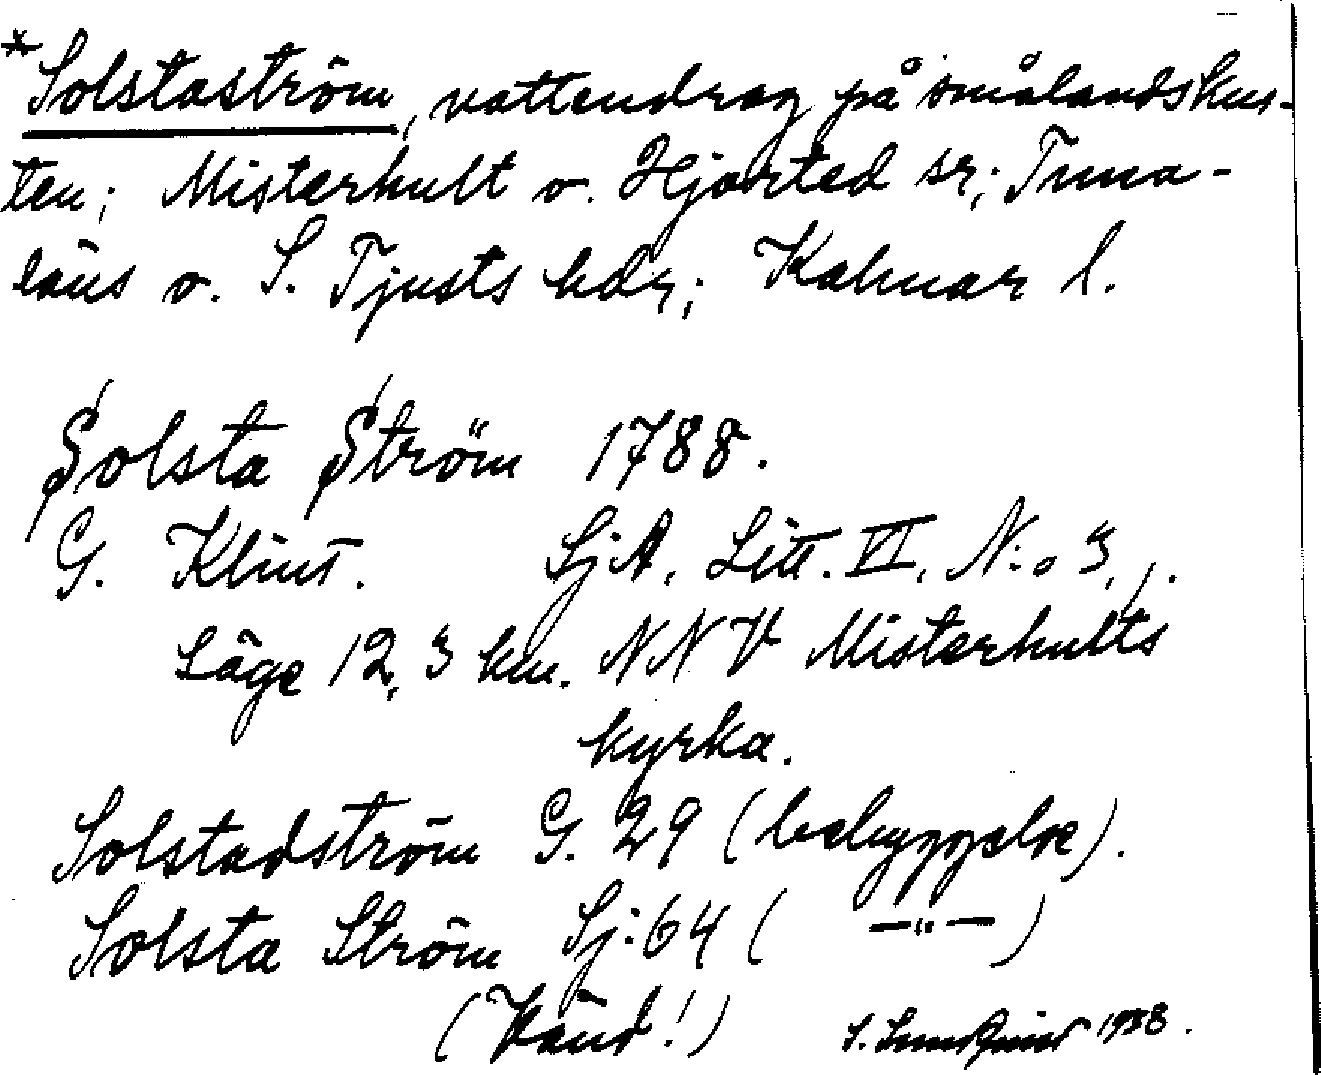 *Solstaström, vattendrag på smålandskus-
ten; Misterhult o. Hjorted sr; Tuna-
läns o. S. Tjusts hdr; Kalmar l.
Solsta Ström 1788.
G. Klint. SjA, Litt. VI, N:o 3,
Läge 12,3 km. NNV Misterhults
kyrka.
Solstadström G. 29 (bebyggelse).
Solsta Ström Sj:64 ( —"— )
(Vänd!) S. 1938.